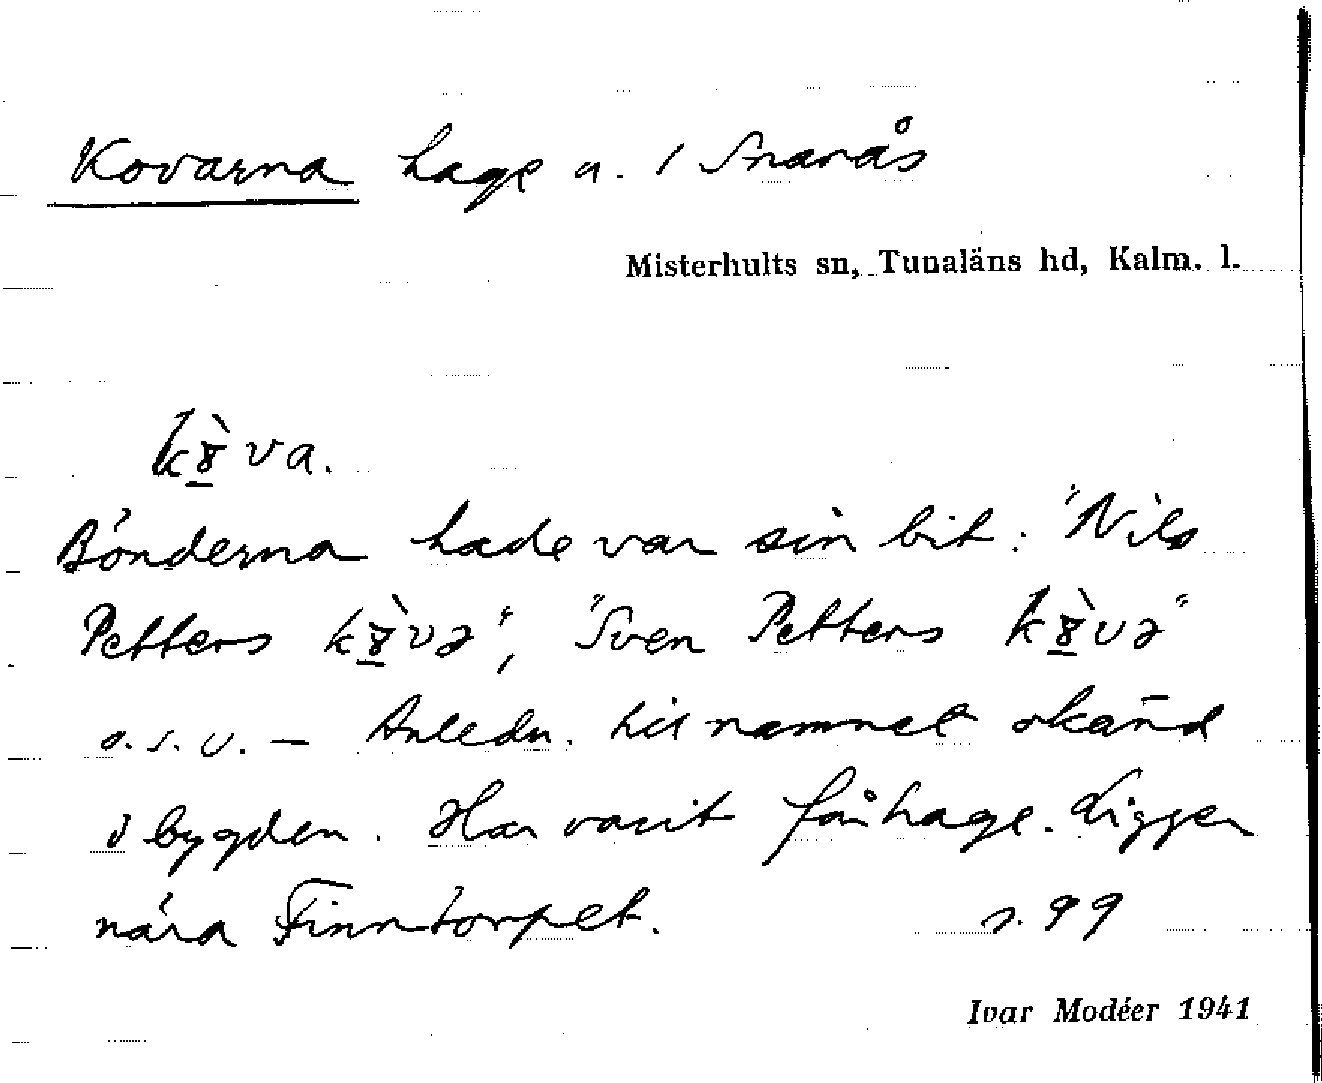 Kovarna hage u. / Snarås
Misterhults sn, Tunaläns hd, Kalm. l.
kȣ̀va.
Bönderna hade var sin bit: "Nils
Petters kȣ̀və", "Sven Petters kȣ̀və"
o.s.v. — Anledn. till namnet okänd
i bygden. Har varit fårhage. Ligger
nära Finntorpet. s. 99
Ivar Modéer 1941